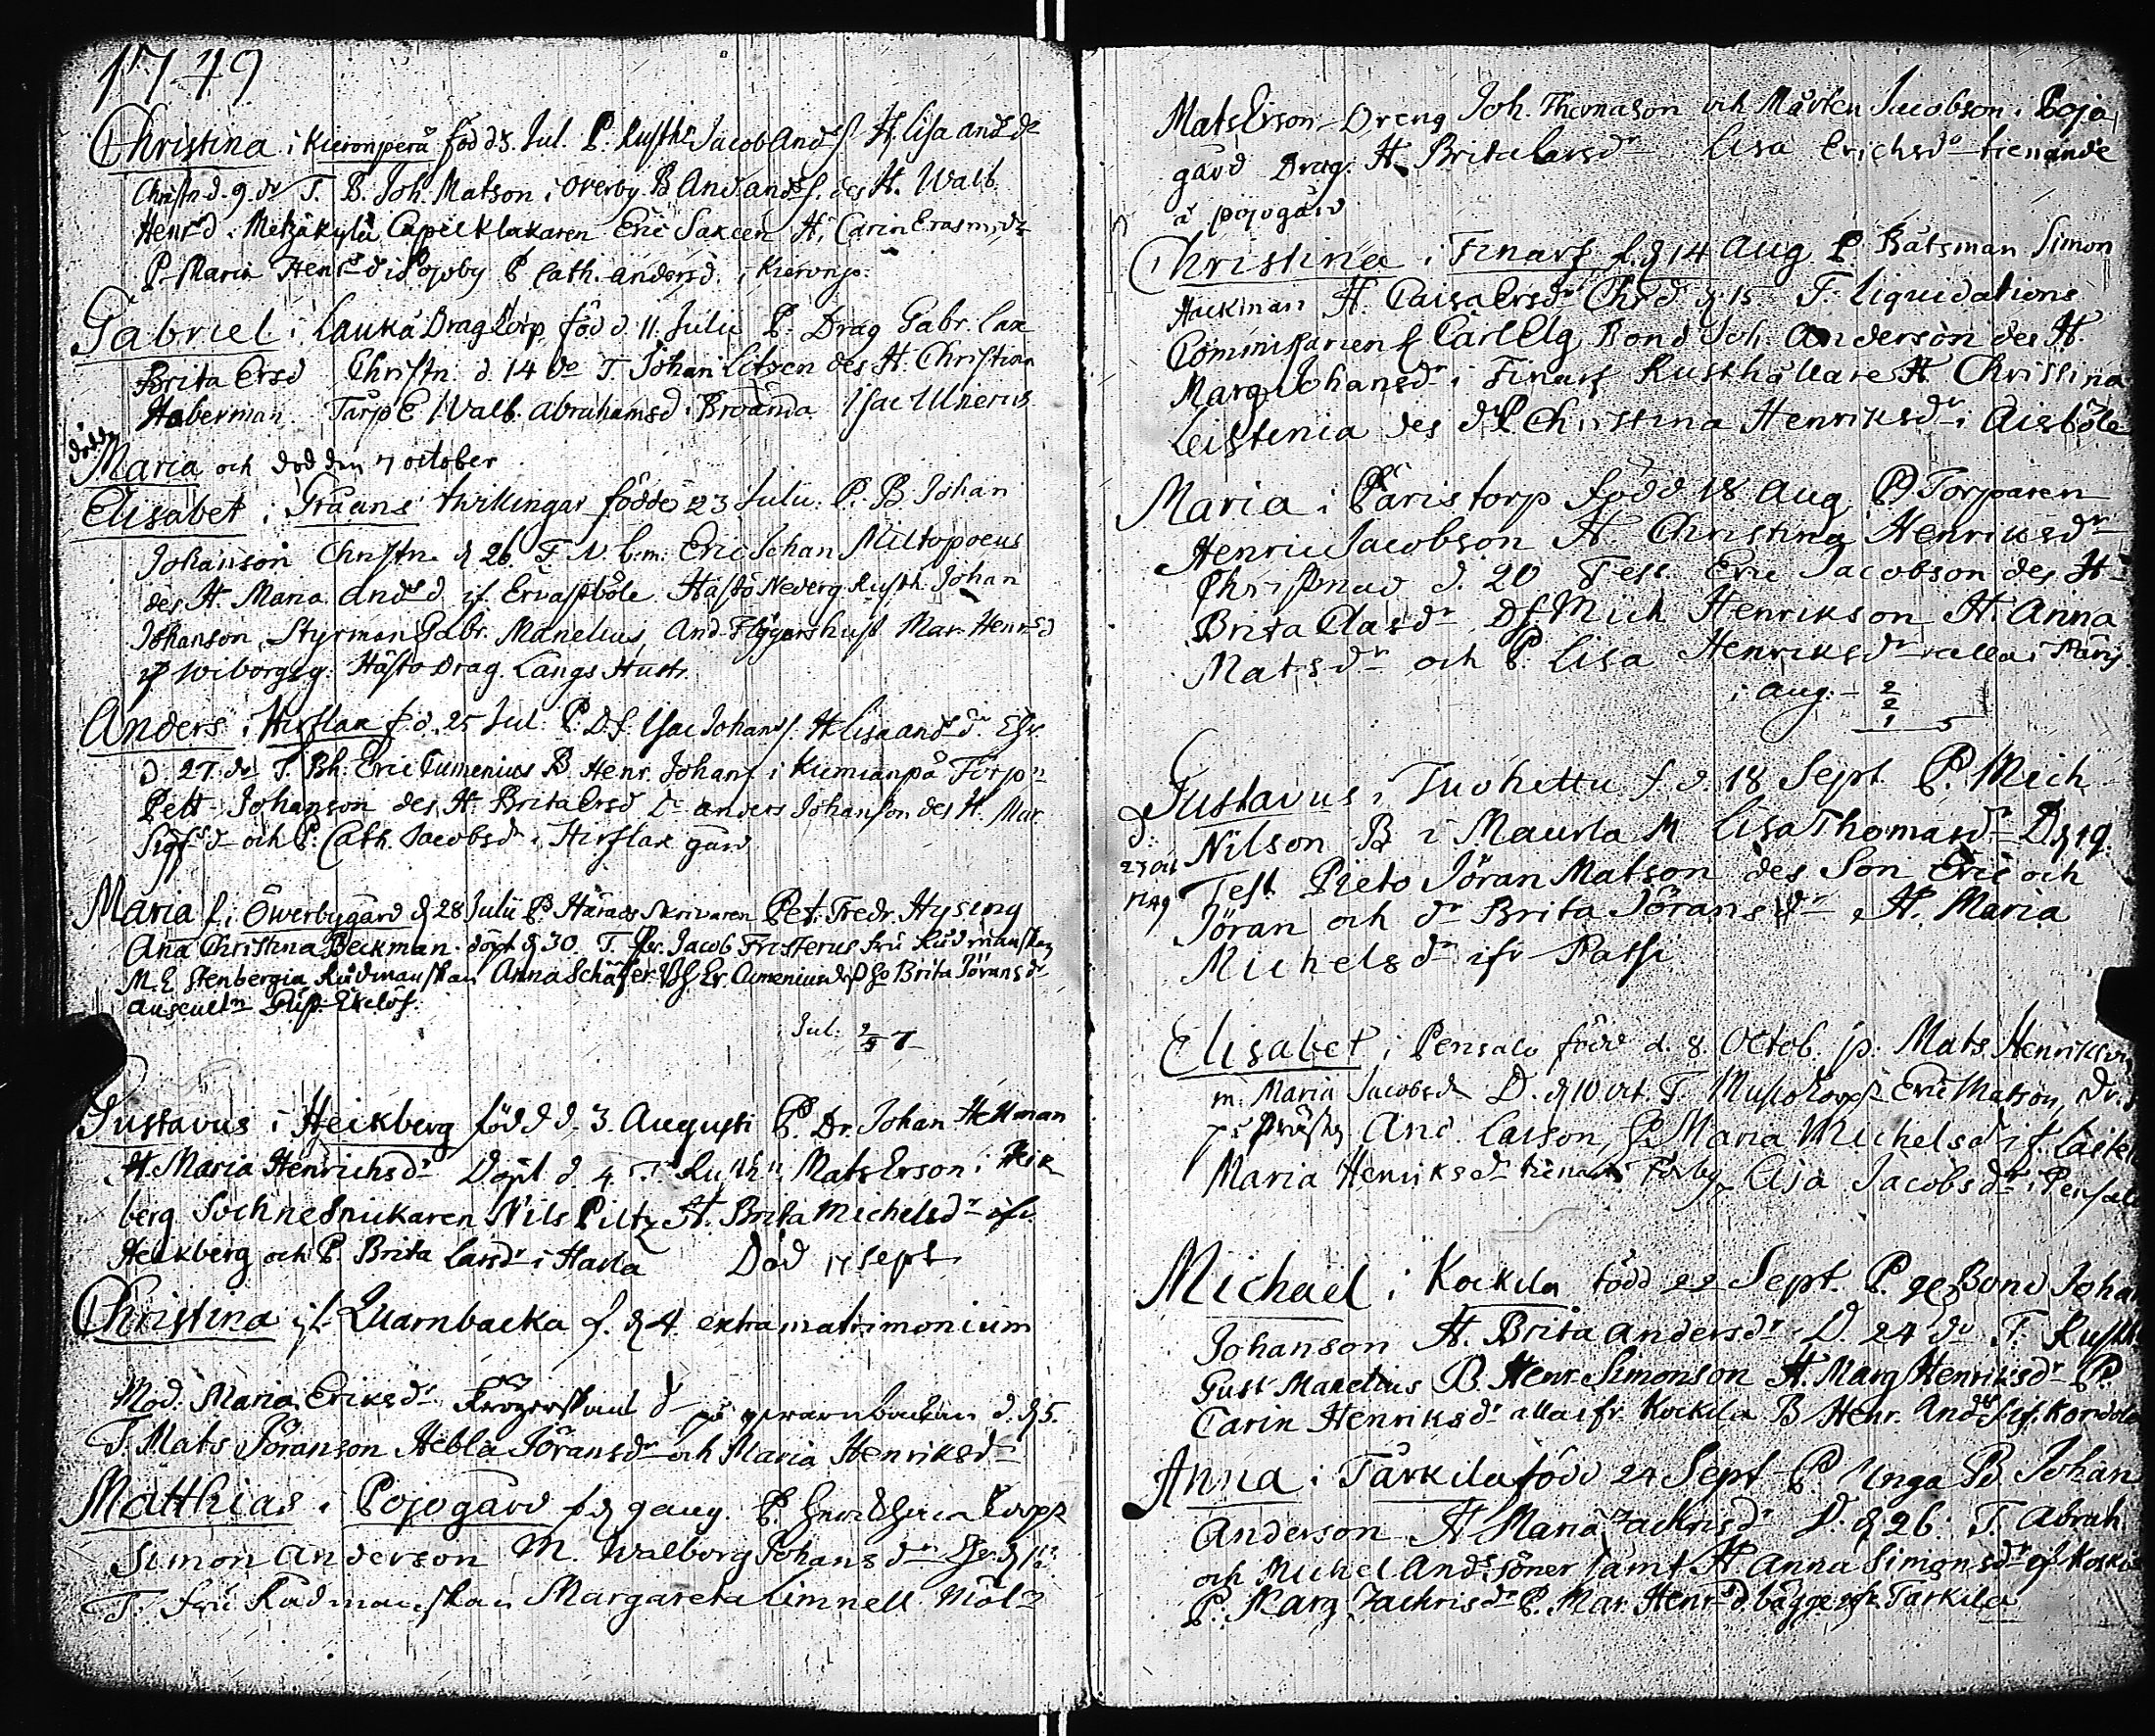 1749
Christina i Kieronperä föd d 5. Jul. P. Rusth Jacob Andss H. Lisa andsdr
Christn d. 9. do T. B. Joh. Matson i Överby B And andss. des H. Walb.
Henrsd. Metzäkylä Capelklåkaren Eric Saxeen H. Carin Erasmidr
P. Maria Henrsd i Pojoby P Cath. andersd. i Kieronp.
Gabriel i Lauka Drag Torp, född 11. Julii P. Drag Gabr. Lax
Brita Ersd Christn. d. 14 do T. Johan Litzen des H. Christina
Haberman Tärp E Walb. abrahamsd. Broända Isac Unerus
döde
Maria och död den 7 october
Elisabet i Gråuns twillingar födde 23 Julii. P. B. Johan
Johanson Christn. d 26. T. N. b.m. Eric Johan Miltopoeus
des H. Maria andsd if. Ervastböle Hästö Nederg Rusth. Johan
Johanson, Styrman Gabr. Manelius, And. Flygars hust Mar. Henrsd
if Wiborgsg. Hästö Drag. Långs Hustr.
Anders i Hirslax f.d. 25 Jul. P. D.f. Isac Johans. H Lisa andsdr. Chr.
d. 27. do T. Bh. Eric Cumenius B Henr. Johans i Kiemianpä Torpn
Pett Johanson des H. Brita Ersd Dr anders Johanson des H. Mar.
Sigfsd och P. Cath. Jacobsd i Hirslax gård
Maria f. i Öwerbygård d 28 Julii P. Härads Skrivaren Pet. Fredr. Hysing
Ana Christina Beckman döpt d 30. T. Hr. Jacob Fristerus fru Rådmanskan
M. E Stenbergia Rådmanskan Anna Schäfer Er. Cumenius Brita Jöransdr
auscultn Gust. Ekelöf.
Jul. 2
5 7
Gustavus i Heikberg född d. 3. Augusti P. Dr. Johan Hellman
H. Maria Henrichsdr Döpt d. 4. T. Rusth. Mats Erson i Heik
berg Sochnesnickaren Nils Piltz H. Brita Michelsdr ifr.
Heikberg och P. Brita Larsdr i Harla Död 17 Sept
Christina if. Quarnbacka f. d 4 extra matrimonium
Mod. Maria Eriksdr på qwarnbackan d. d 5.
T. Mats Jöranson Hebla Jöransdr och Maria Henriksdr
Matthias i Pojogård f d 9 aug. P. Torpr
Simon Anderson M. Walborg Johansdr
T. Fru Rådmanskan Margareta Limnell Möl
Mats Erson Dreng Joh. Thomason och Mårten Jacobson i Pojo
gård Drag. H. Brita Larsdr Lisa Erichsdr tienande
å pojogård
Christina i Finars f. d 14 aug P. Båtsman Simon
Hackman H. Caisa Ersdr Chrd d 15 T. Liquidations
Commissarien Carl Elg Bond Joh. Anderson des H.
Marg Johansdr i Finars Rusthållare H Christina
Leistenia des dr P. Christina Henriksdr i Aisböle
Maria i Päristorp född 18 aug P Torparen
Henric Jacobson H. Christina Henriksdr
Christnad d. 20 Test. Eric Jacobson des H
Brita Clasdr D.f. Mich Henrikson H. Anna
Matsdr och P. Lisa Henriksdr alla i Päris
i aug. – 2
2
1 5
Gustavus i Tuohettu f d. 18 Sept. P. Mich
d. 27 Oct 1749
Nilson B i Maurla M Lisa Thomasdr D d 19.
Test. Pieto Jöran Matson des Son Eric och
Jöran och dr Brita Jöransdr H. Maria
Michelsdr ifr Patsi
Elisabet i Pensalo född d. 8. Octob. p. Mats Henrikson
m. Maria Jacobsdr D. d 10 oct. T. Eric Matson, Dr.
And. Larson, P. Maria Michelsdr if.
Maria Henriksdr tienande Förby Caja Jacobsdr i Pensalo
Michael i Kockila född 22 Sept. P. Bond Johan
Johanson H. Brita Andersdr D. 24 do T. Rusth
Gust Manelius B. Henr. Simonson H. Marg Henriksdr P.
Carin Henriksdr alla ifr. Kockila B Henr. Ands if. Kordola
Anna i Tarkila född 24 Sept P. Unga B Johan
Anderson H Maria Zachrisdr D. d 26. T. Abrah
och Michel Ands söner samt H. Anna Simonsdr if Koski
P. Marg Zachrisdr P. Mar. Henrsd bägge ifr Tarkila